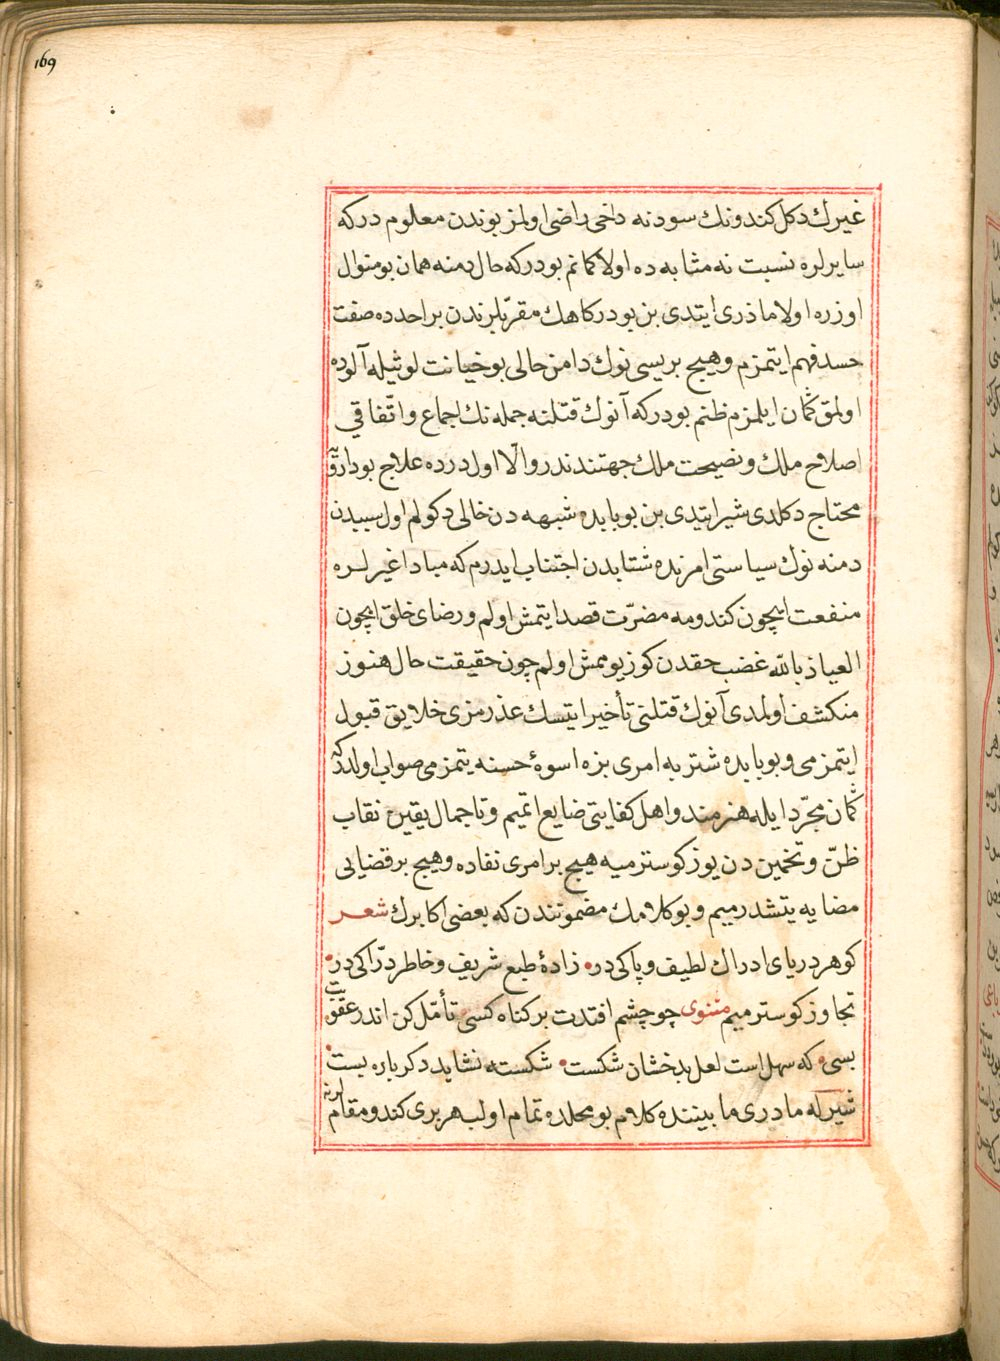 169
غیرك دكل كندونك سودنه داخی راضی اولمز بوندن معلوم دركه
سایرلره نسبت نه مثابه ده اولا كمانم بودركه حال دمنه همان بو منوال
اوزره اولا مادری ایتدی بن بو دركاهك مقرّبلرندن بر احدده صفت
حسد فهم ایتمزم وهیچ بریسی نوك دامن حالی بو خیانت لوثیله آلوده
اولمق كمان ایلمزم ظنم بودركه آنوك قتلنه جمله نك اجماع واتّفاقی
اصلاح ملك ونصیحت ملك جهتندندر والّا اول درده علاج بو دارویه
محتاج دكلدی شیر ایتدی بن بو بابده شبهه دن خالی دكولم اول سببدن
دمنه نوك سیاستی امرنده شتابدن اجتناب ایدرم كه مبادا غیرلره
منفعت ایچون كندومه مضرّت قصد ایتمش اولم ورضای خلق ایچون
العیاذ بالله غضب حقدن كوز یوممش اولم چون حقیقت حال هنوز
منكشف اولمدی آنوك قتلنی تأخیر ایتسك عذرمزی خلایق قبول
ایتمزمی وبو بابده شتربه امری بزه اسوهٔ حسنه یتمزمی صواب اولدركه
كمان مجرّد ایله هنرمند واهل كفایتی ضایع اتمیم وتا جمال یقین نقاب
ظنّ وتخمین دن یوز كوسترمیه هیچ بر امری نفاده وهیچ بر قضایی
مضایه یتشدرمیم وبو كلامك مضمونندن كه بعضی اكابرك شعر
كوهر دریای ادراك لطیف وپاكی در زادهٔ طبع شریف وخاطر درّاكی در
تجاوز كوسترمیم مثنوی چو چشم افتدت بر كناه كسی تأمّل كن اندر عقوبت
بسی كه سهل است لعل بدخشان شكست شكسته نشاید دكرباره بست
شیرله مادری ما بیننده كلام بو محلده تمام اولب هر بری كندو مقاملرنه